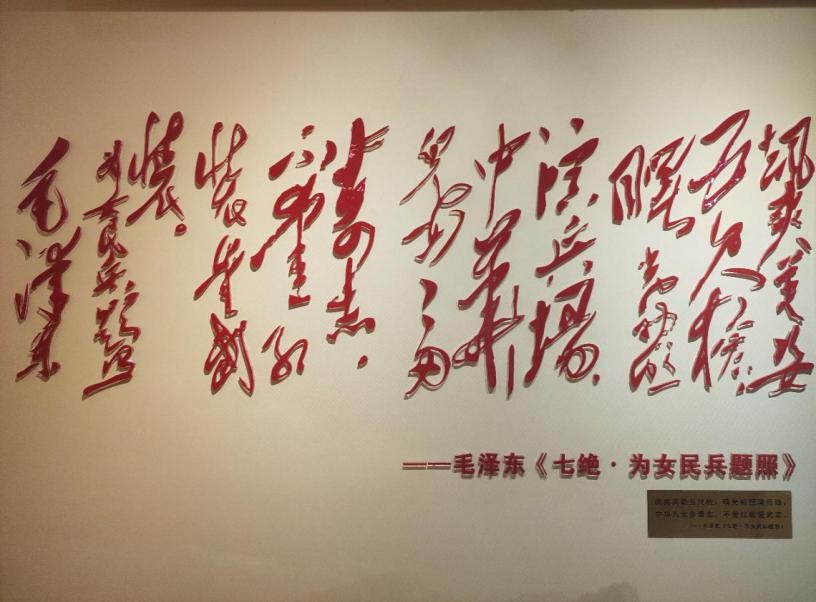 飒爽英姿
五尺槍，
曙光初照
演兵場。
中華
兒女多
奇志，
不爱红
装爱武
装。
为女民兵题照
毛泽东
——毛泽东《七绝·为女民兵题照》
飒爽英姿五尺枪，曙光初照演兵场。
中华儿女多奇志，不爱红装爱武装。
——毛泽东《七绝·为女民兵题照》